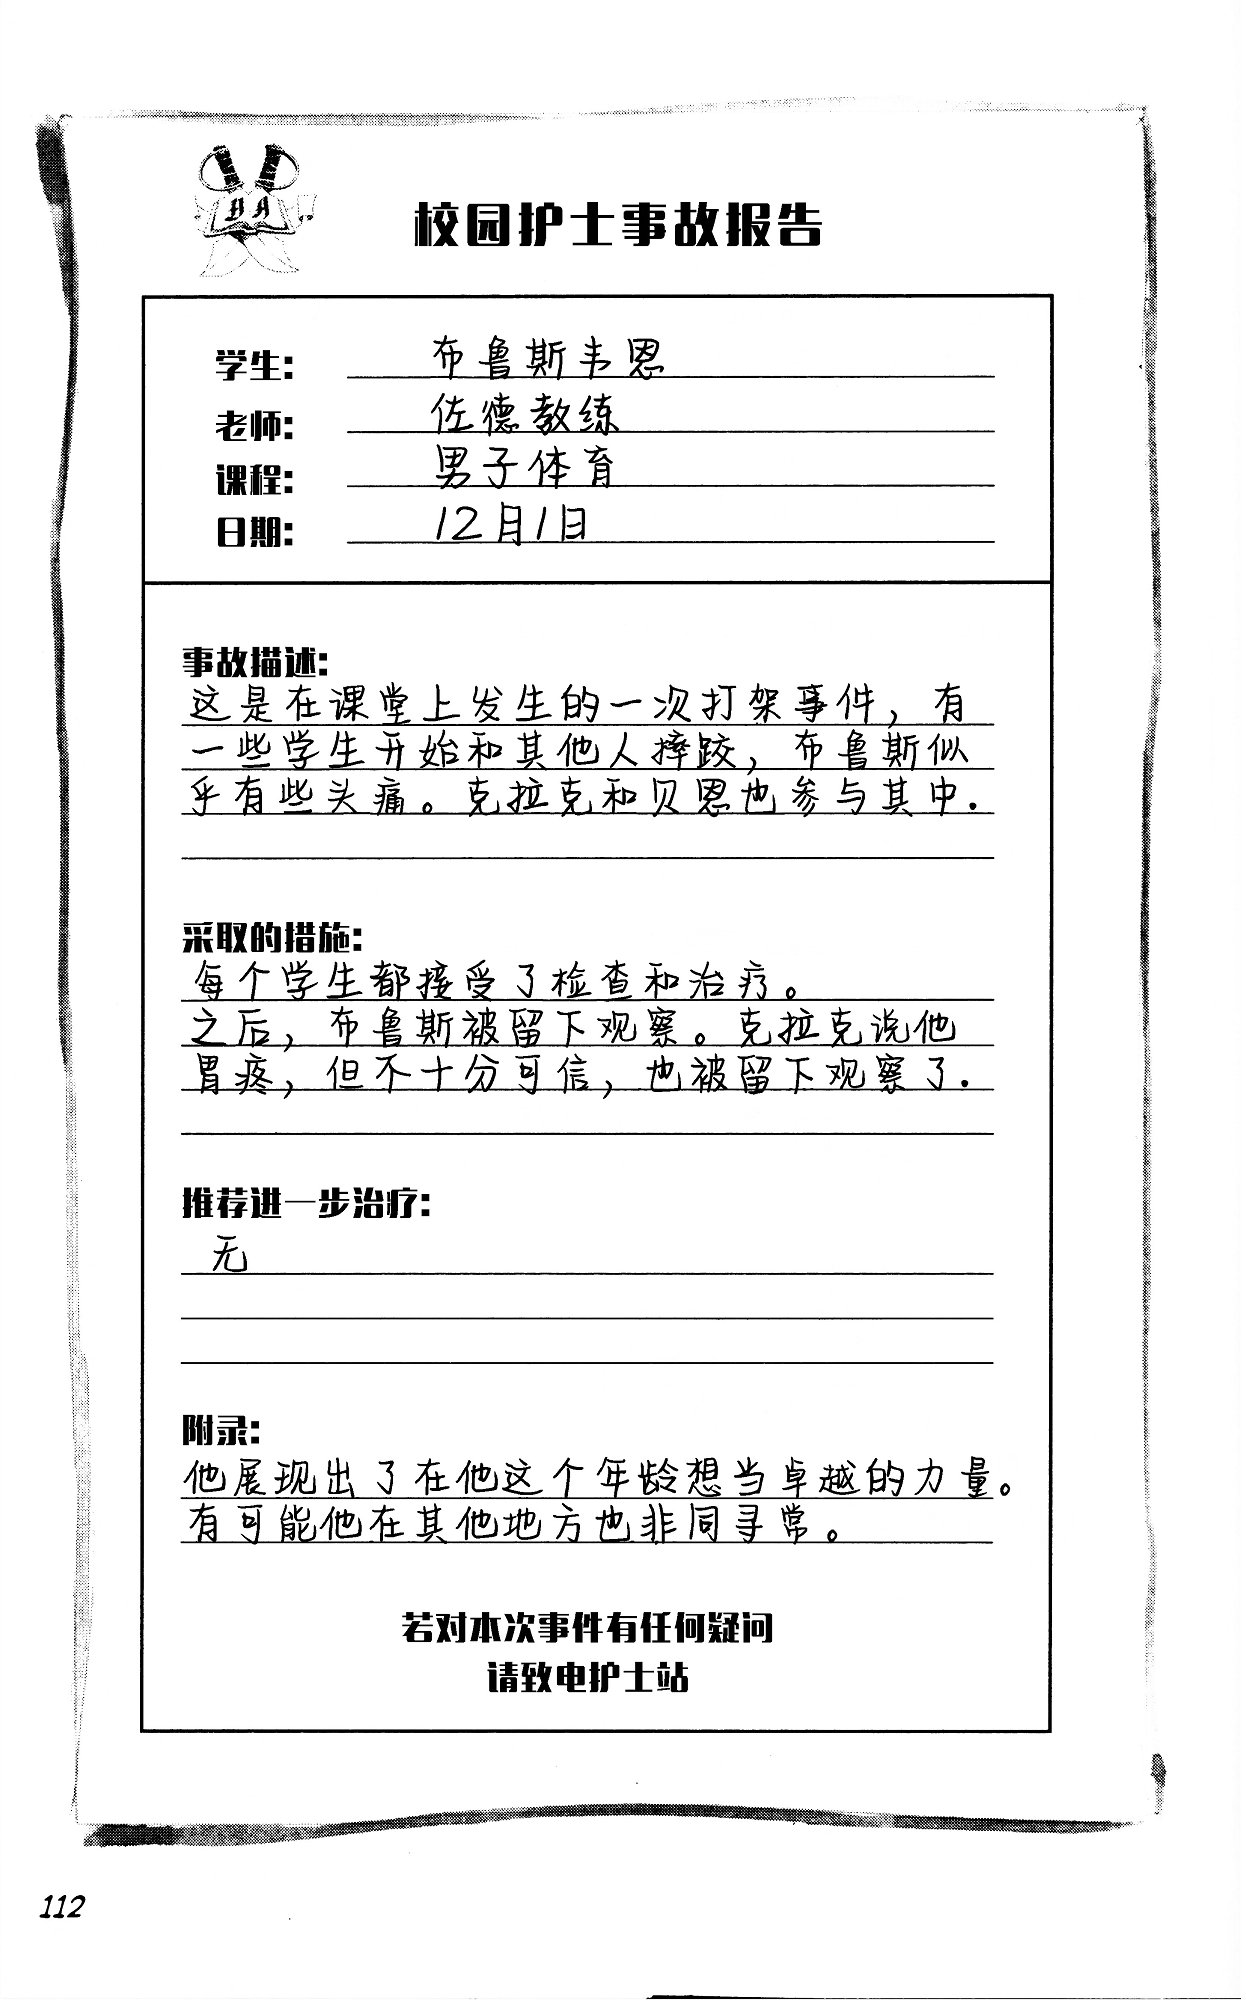 DA
校园护士事故报告
学生: 布鲁斯韦恩
老师: 佐德教练
课程: 男子体育
日期: 12月1日
事故描述:
这是在课堂上发生的一次打架事件，有
一些学生开始和其他人摔跤，布鲁斯似
乎有些头痛。克拉克和贝恩也参与其中.
采取的措施:
每个学生都接受了检查和治疗。
之后，布鲁斯被留下观察。克拉克说他
胃疼，但不十分可信，也被留下观察了.
推荐进一步治疗:
无
附录:
他展现出了在他这个年龄想当卓越的力量。
有可能他在其他地方也非同寻常。
若对本次事件有任何疑问
请致电护士站
112